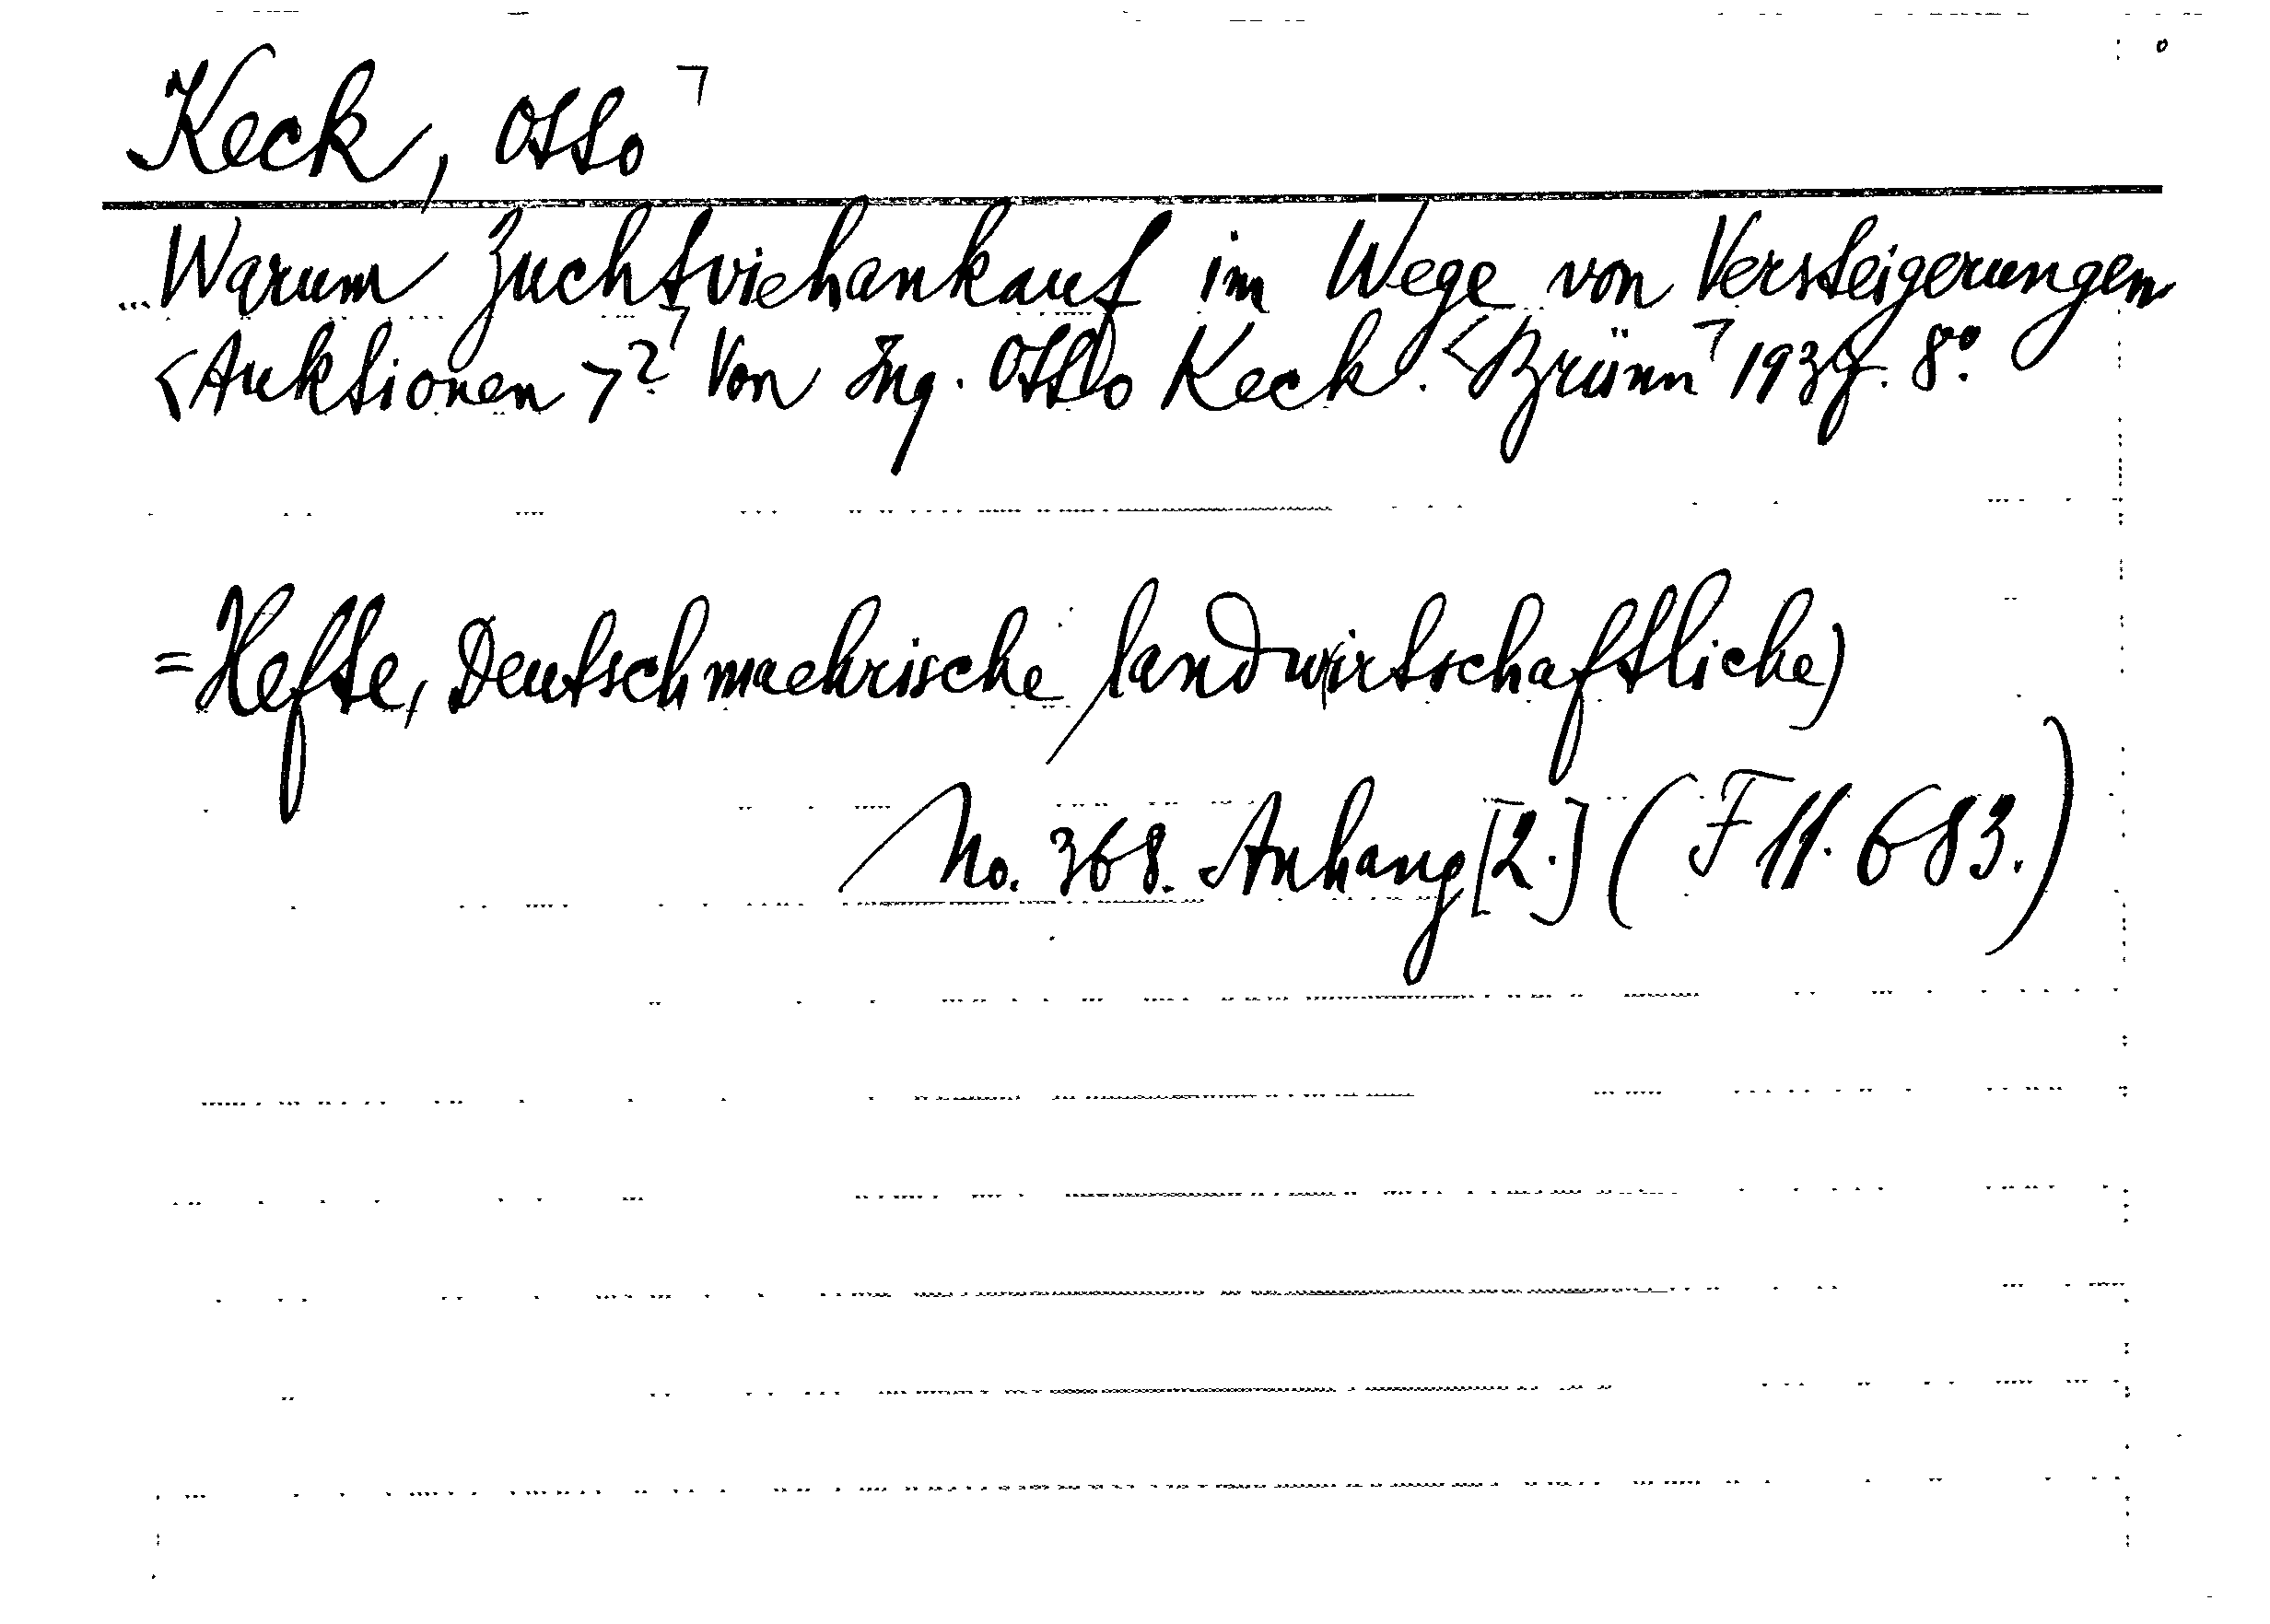 Keck, Otto
Warum Zuchtviehankauf im Wege von Versteigerungen
<Auktionen>? Von Ing. Otto Keck. <Brünn 8°.
=Hefte, Deutschmaehrische landwirtschaftliche)
No. 368. Anhang [2.] (F 11.683.)